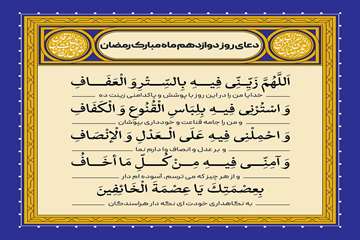 دعای روز دوازدهم ماه مبارک رمضان
اَللَّهُمَّ زَيِّنِّي فِيهِ بِالسِّتْرِ وَ الْعَفَافِ
خدایا من را در این روز با پوشش و پاکدامنی زینت ده
وَ اسْتُرْنِي فِيهِ بِلِبَاسِ الْقُنُوعِ وَ الْكَفَافِ
و من را جامه قناعت و خودداری بپوشان
وَ احْمِلْنِي فِيهِ عَلَى الْعَدْلِ وَ الْإِنْصَافِ
و بر عدل و انصاف وادارم نما
وَ آمِنِّي فِيهِ مِنْ كُلِّ مَا أَخَافُ
و از هر چیز که می ترسم، آسوده ام دار
بِعِصْمَتِكَ يَا عِصْمَةَ الْخَائِفِينَ
به نگاهداری خودت ای نگه دار هراسندگان